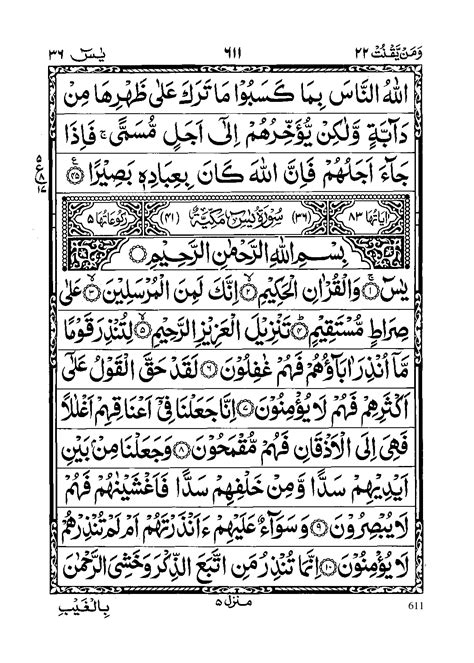 وَمَنْ يَّقْنُتْ ٢٢ ٦١١ يٰسٓ ٣٦
اللّٰهُ النَّاسَ بِمَا كَسَبُوْا مَا تَرَكَ عَلٰى ظَهْرِهَا مِنْ
دَآبَّةٍ وَّلٰكِنْ يُّؤَخِّرُهُمْ اِلٰٓى اَجَلٍ مُّسَمًّى ۚ فَاِذَا
جَآءَ اَجَلُهُمْ فَاِنَّ اللّٰهَ كَانَ بِعِبَادِهٖ بَصِيْرًا ۝٤٥
ع ٥ ٨ ١٧
اٰيَاتُهَا ٨٣ (٣٦) سُوْرَةُ يٰسٓ مَكِّيَّةٌ (٤١) رُكُوْعَاتُهَا ٥
بِسْمِ اللّٰهِ الرَّحْمٰنِ الرَّحِيْمِ ۝
يٰسٓ ۝١ وَالْقُرْاٰنِ الْحَكِيْمِ ۝٢ اِنَّكَ لَمِنَ الْمُرْسَلِيْنَ ۝٣ عَلٰى
صِرَاطٍ مُّسْتَقِيْمٍ ۝٤ تَنْزِيْلَ الْعَزِيْزِ الرَّحِيْمِ ۝٥ لِتُنْذِرَ قَوْمًا
مَّآ اُنْذِرَ اٰبَآؤُهُمْ فَهُمْ غٰفِلُوْنَ ۝٦ لَقَدْ حَقَّ الْقَوْلُ عَلٰٓى
اَكْثَرِهِمْ فَهُمْ لَا يُؤْمِنُوْنَ ۝٧ اِنَّا جَعَلْنَا فِيْٓ اَعْنَاقِهِمْ اَغْلٰلًا
فَهِيَ اِلَى الْاَذْقَانِ فَهُمْ مُّقْمَحُوْنَ ۝٨ وَجَعَلْنَا مِنْۢ بَيْنِ
اَيْدِيْهِمْ سَدًّا وَّمِنْ خَلْفِهِمْ سَدًّا فَاَغْشَيْنٰهُمْ فَهُمْ
لَا يُبْصِرُوْنَ ۝٩ وَسَوَآءٌ عَلَيْهِمْ ءَاَنْذَرْتَهُمْ اَمْ لَمْ تُنْذِرْهُمْ
لَا يُؤْمِنُوْنَ ۝١٠ اِنَّمَا تُنْذِرُ مَنِ اتَّبَعَ الذِّكْرَ وَخَشِيَ الرَّحْمٰنَ
بِالْغَيْبِ منزل ٥ 611